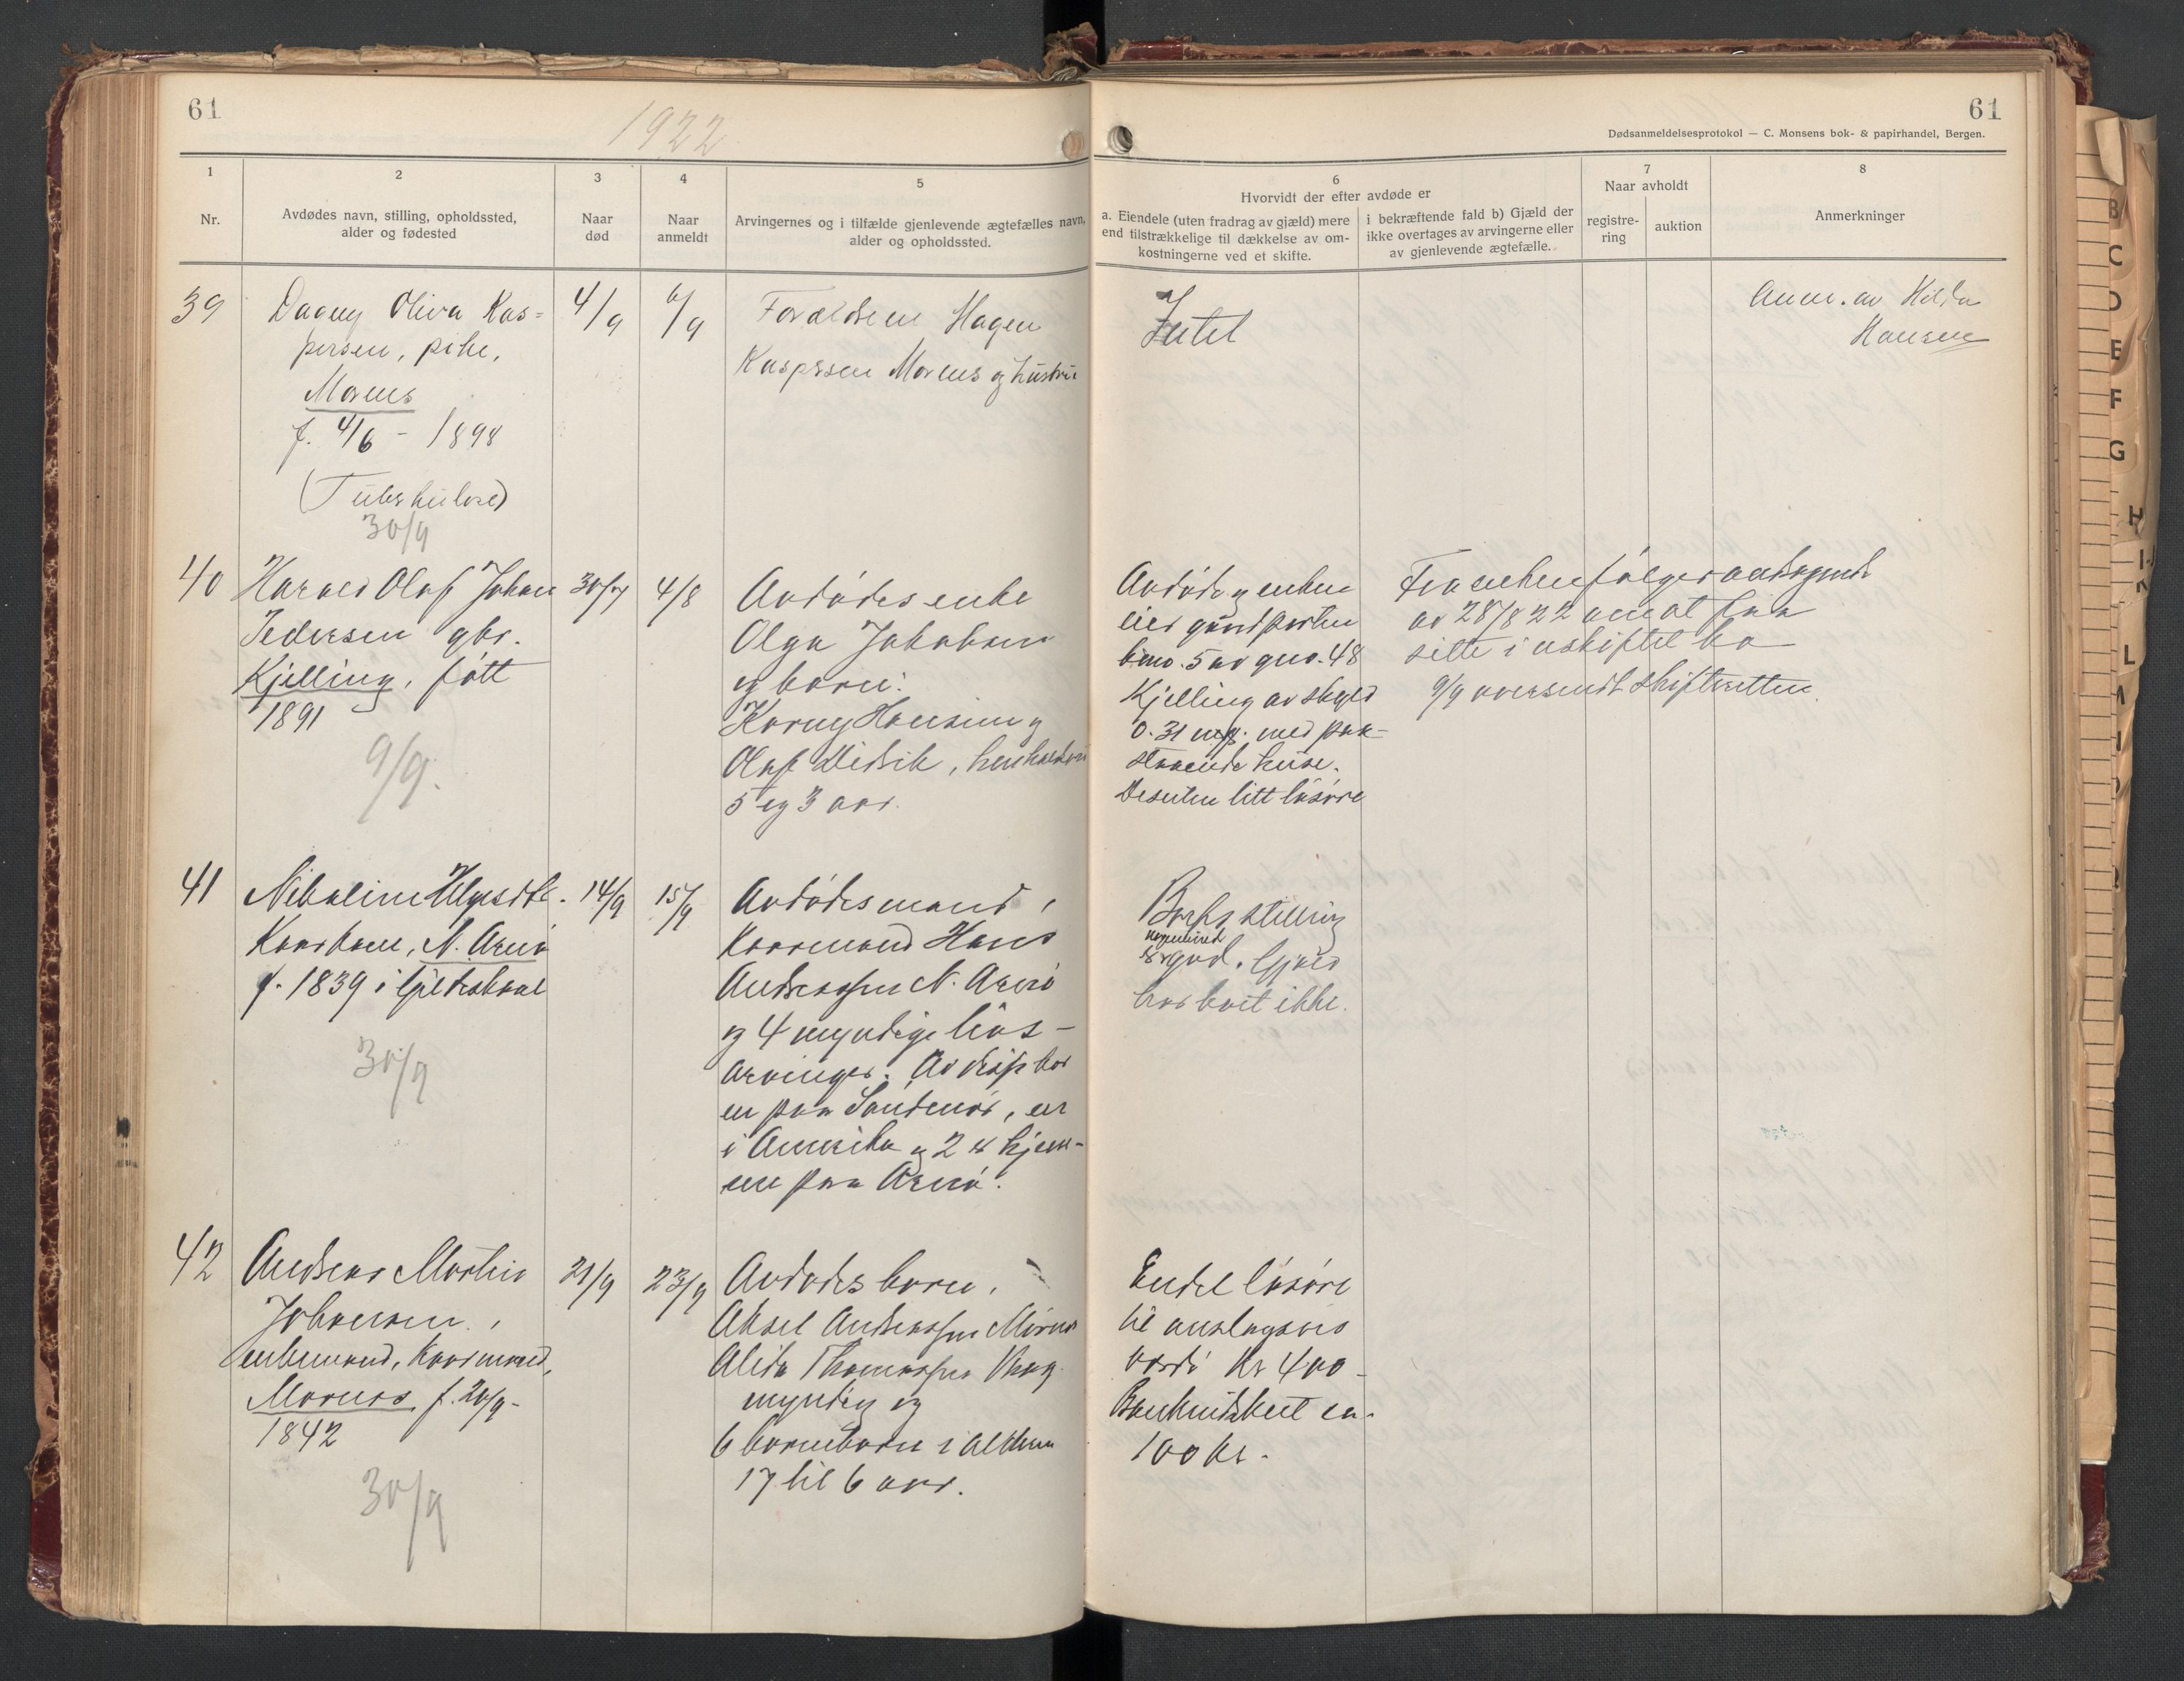 61
1922
61
Dødsanmeldelsesprotokol — C. Monsens bok- & papirhandel, Bergen.
1
2
3
4
5
6
7
8
Nr.
Avdødes navn, stilling, opholdssted,
alder og fødested
Naar
død
Naar
anmeldt
Arvingernes og i tilfælde gjenlevende ægtefælles navn,
alder og opholdssted.
Hvorvidt der efter avdøde er
a. Eiendele (uten fradrag av gjæld) mere
end tilstrækkelige til dækkelse av om-
kostningerne ved et skifte.
i bekræftende fald b) Gjæld der
ikke overtages av arvingerne eller
av gjenlevende ægtefælle.
Naar avholdt
registre-
ring
auktion
Anmerkninger
39
Dagny Oliva Kas=
persen, pike,
Mornes
f. 4/6 - 1898
(Tuberkulose)
30/9
4/9
6/9
Forældrene Hagen
Kaspersen Mornes og hustru
Intet
Anm. av Hilda
Hansen
40
Harald Olaf Johan
Pedersen gbr.
Kjelling, født
1891
9/9.
30/7
4/8
Avdødes enke
Olga Jakobsen
og børn:
Korny Hansine og
Olaf Didrik, henholdsvis
5 og 3 aar.
Avdøde og enken
eier gaardparten
b.no. 5 av gno. 48
Kjelling av skyld
0.31 mk. med paa-
staaende huse.
Desuten litt løsøre
Fra enken følger andragende
av 28/8 22 om at faa
sitte i uskiftet bo
9/9 oversendt skifteretten.
41
Nikoline Helgesdtr.
Kaarkone, N. Arnø
f. 1839 i Gildeskaal
30/9
14/9
15/9
Avdødes mand,
Kaarmand Hans
Andreassen N. Arnø
og 4 myndige livs-
arvinger. Av disse bor
en paa Sandnes, en
i Amerika og 2 er hjem-
me paa Arnø.
Boets stilling
er god. Gjæld
har boet ikke.
42
Andreas Martin
Johansen,
enkemand, Kaarmand,
Mornes f. 20/9-
1842
30/9
21/9
23/9
Avdødes børn,
Aksel Andreassen Mornes
Alida Thomassen
myndig og
6 børnebørn i alderen
17 til 6 aar.
Endel løsøre
til anslagsvis
værdi Kr 400-
Bankindskut ca.
100 kr.